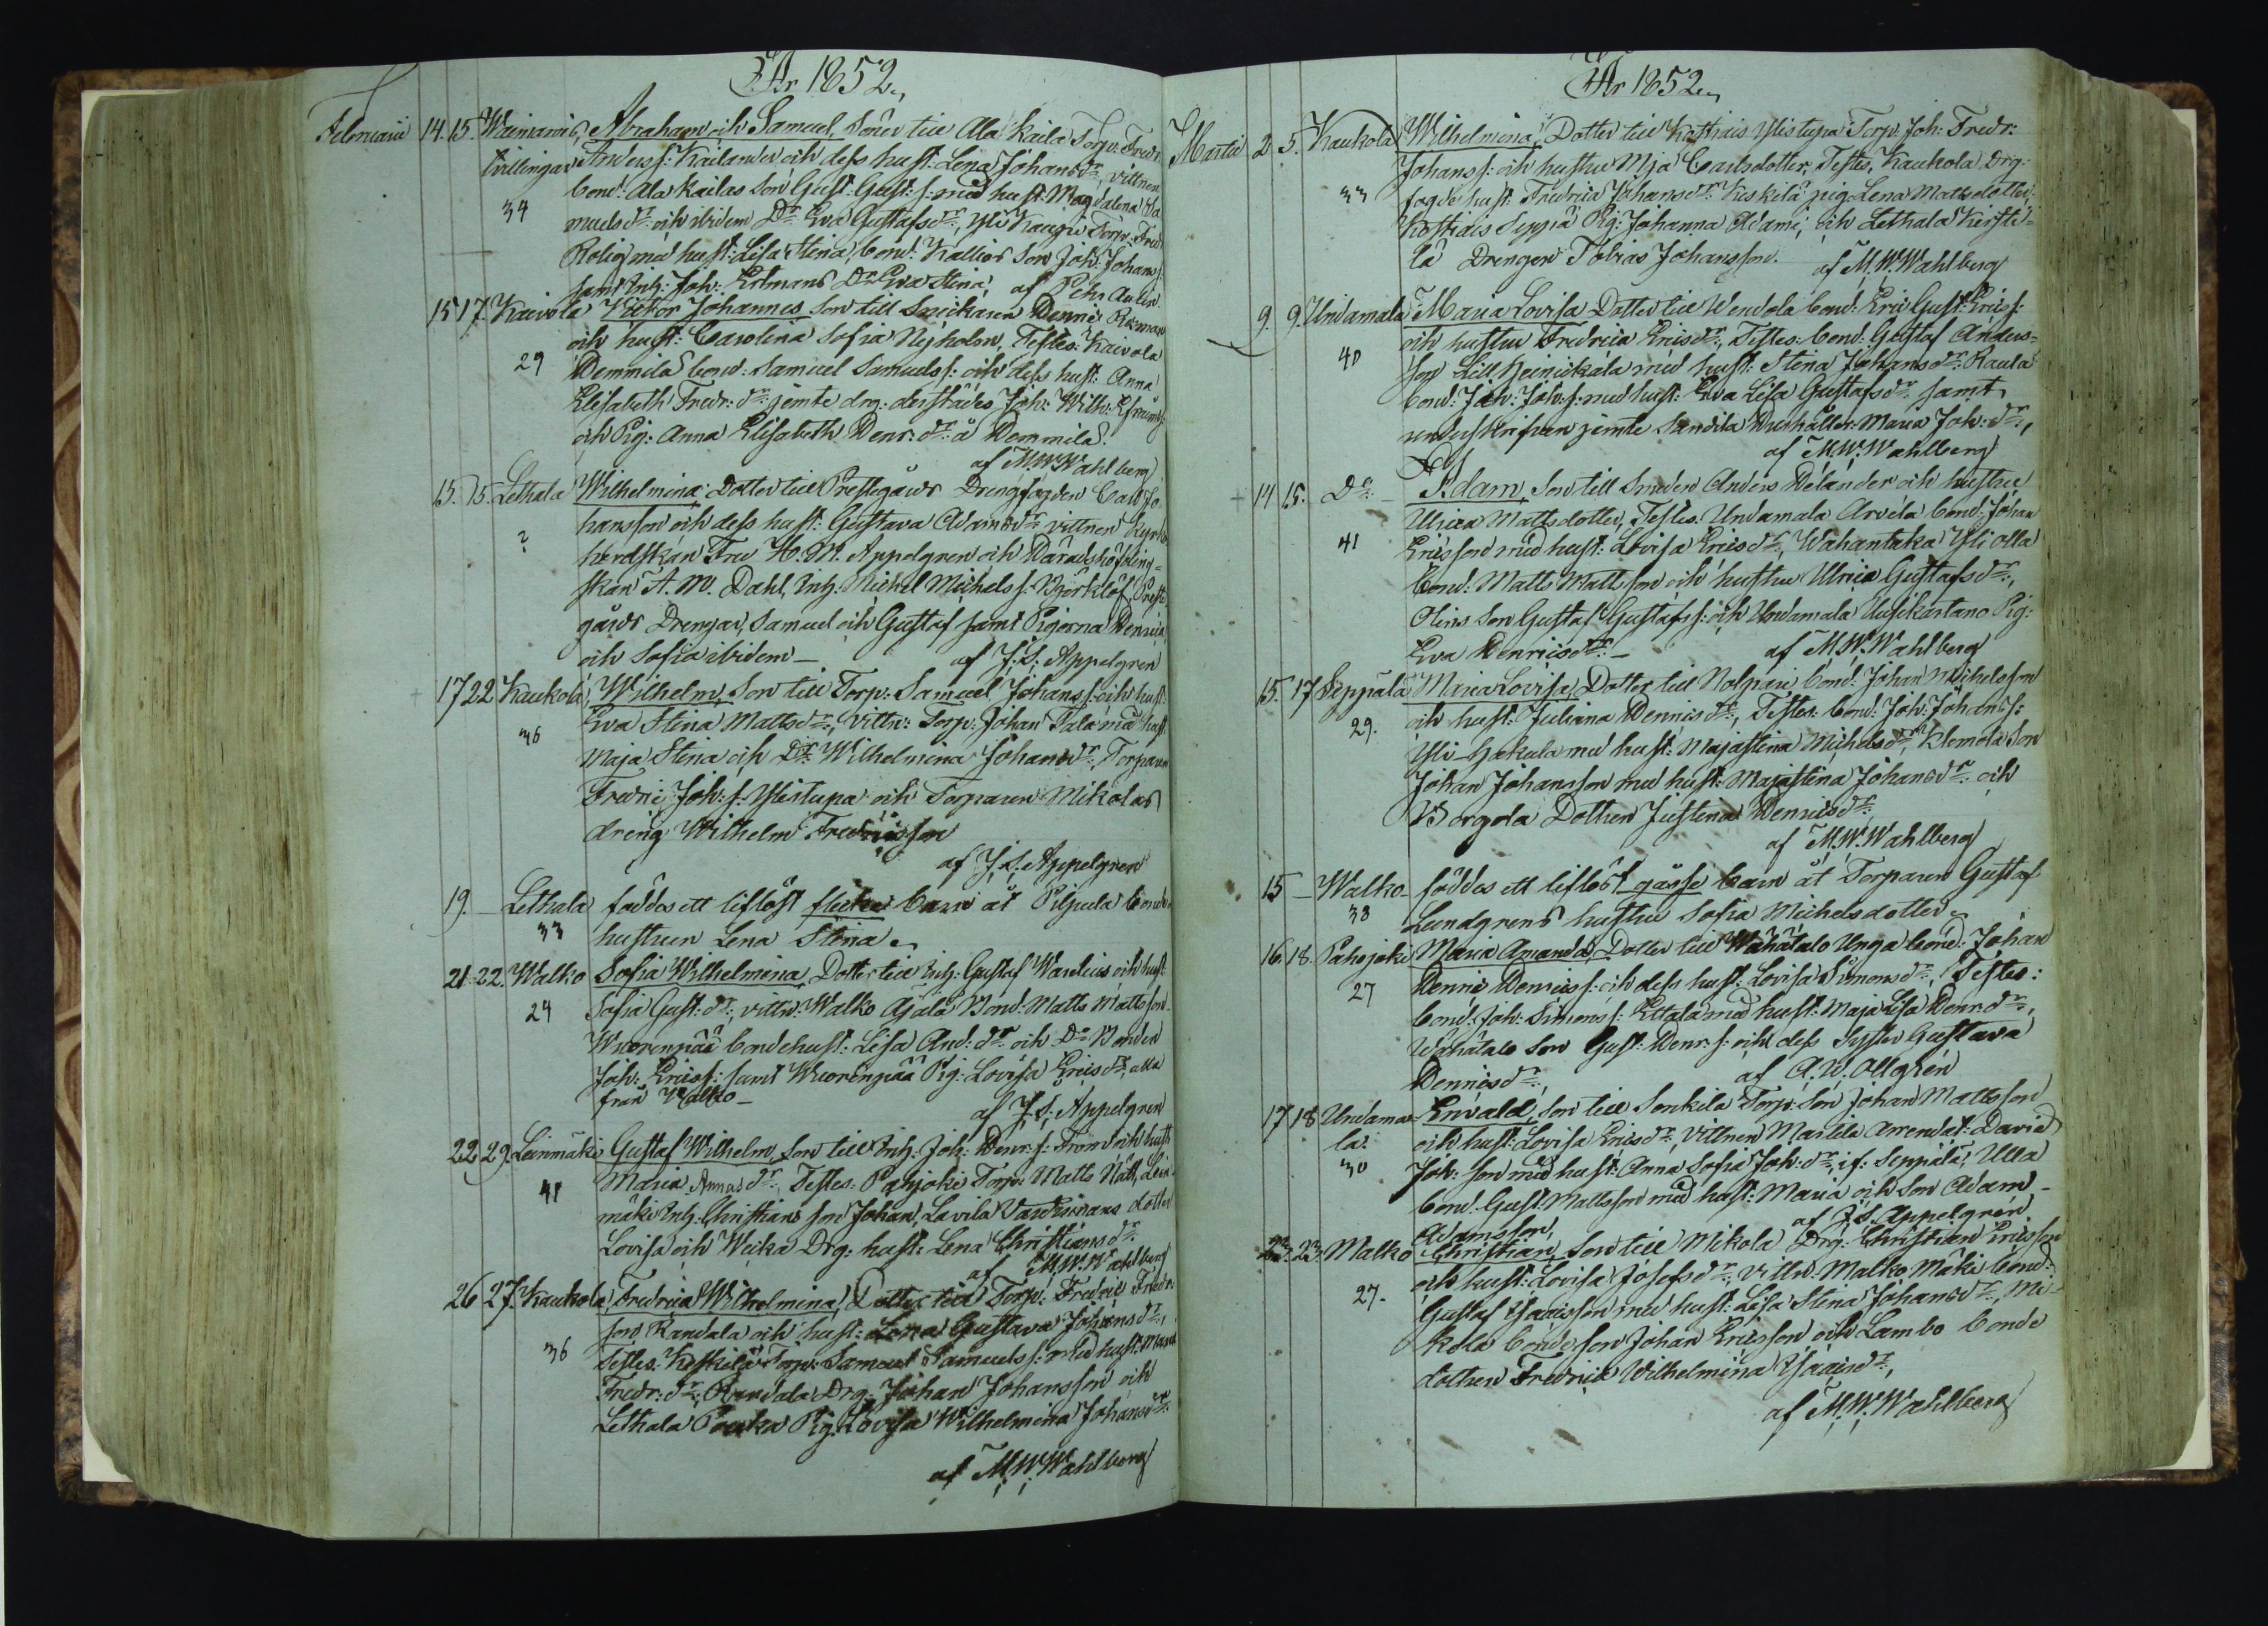 År 1852.
Februarii 14. 15. Waimaro Abraham och Samuel, söner till Ala Kaila Torp: Fredr:
tvillingar Anders s: Kailander och dess hust. Lena Johansdr, vittnen
34 bond: Ala Kailas son Gust: Gust: s: med hust: Magdalena
muels dr och ibidem Dr Eva Gustafsdr, Torp: Fred:
Rolig med hust: Lisa Stina, bond: Kallios son Joh: Johans s:
samt Inh: Joh: Ertmans Dr Eva Stina, af Petr Aulin
15 17. Kaivola Victor Johannes son till Snickaren Henric
och hust: Carolina Sofia Nyholm, Testes: Kaivola
29 Hemmilä bond: Samuel Samuels s: och dess hust: Anna
Elisabeth Fredr: dr jemte drg: derstädes Joh: Wilh:
och Pig: Anna Elisabeth Henr: dr å Hemmilä.
af M.W. Wahlberg
15. 15. Lethala Wilhelmina Dotter till Prestegårds Drengfogden Carl Jo-
hansson och dess hust: Gustava Adamsdr vittnen Kyrko
? herdskan Fru H. M. Appelgren och Häradshöfding-
skan A. M. Dahl, Inh: Michel Michels s: Björklöf, Preste
gårds Drengar, Samuel och Gustaf samt Pigorna Henrica
och Sofia ibidem — af J. S. Appelgren
17 22 Kaukola, Wilhelm, Son till Torp: Samuel Johans s: och hust:
36 Eva Stina Mattsdr, vittn: Torp: Johan Tala med hust.
Maja Stina och Dr Wilhelmina Johansdr, Torparen
Fredric Joh: s: Ylistupa och Torparen Mikolas
dreng Wilhelm Fredricsson
af J. S. Appelgren
19. — Lethala föddes ett liflöst flicke barn åt Pilpula bonde-
33 hustrun Lena Stina.
21 22. Walko Sofia Wilhelmina, Dotter till Inh: Gustaf Warelius och hust
24 Sofia Gust: dr, vittn: Walko Ajala Bond: Matts Mattsson
Wuorenpää bondehust: Lisa And: dr och Do Bonden
Joh: Erics s: samt Wuorenpää Pig: Lovisa Ericsdr, alla
från Walko — af J. S. Appelgren
22 29. Leinmäki Gustaf Wilhelm, Son till Inh: Joh: Henr: s: Fröm och hust:
41 Maria dr, Testes: Pahjoki Torp: Matts Nätt, Lein-
mäki Inh: Christians son Johan, Lavila dotter
Lovisa och Weika Drg: hust: Lena Christiansdr
af M.W. Wahlberg
26 27. Kaukola, Fredrica Wilhelmina, Dotter till Torp: Fredric Fredric
son Randala och hust: Lena Gustava Johansdr,
36 Testes: Keskilä Torp: Samuel Samuels s: med hust: Maria
Fredr: dr, Randala Drg: Johan Johansson och
Lethala Pouka Pig: Lovisa Wilhelmina Johansdr
af M.W. Wahlberg
År 1852.
Martii 2. 5. Kaukola Wilhelmina, Dotter till Kothiais Ylistupa Torp: Joh: Fredr:
Johans s: och hustru Mja Carlsdotter, Testes, Kaukola drg:
33 fogde hust: Fredrica Johansdr Keskilä pig: Lena Mattsdotter,
Kothiais Seppä Pig: Johanna Adami, och Lethala Kersti-
lä Drengen Tobias Johansson. af M.W. Wahlberg
9. 9. Undamala Maria Lovisa Dotter till Wendola bond: Eric Gust: Erics s:
och hustru Fredrica Ericsdr, Testes: bond: Gustaf Anders-
40 son Lill Heinickala med hust: Stina Johansdr Raula
bond: Joh: Joh: s: med hust: Eva Lisa Gustafsdr samt
jemte Sandila Hushåller: Maria Joh: dr,
af M.W. Wahlberg
14 15. Do — Adam, Son till Smeden Anders Helander och hustru
Ulrica Mattsdotter, Testes: Undamala Arvela bond: Johan
41 Ericsson med hust: Lovisa Ericsdr, Wahantaka Yli Olla
bond: Matts Mattsson och hustru Ulrica Gustafsdr,
Olins son Gustaf Gustafs s: och Undamala Uusikartano Pig:
Eva Henricsdr — af M.W. Wahlberg
15. 17 Seppälä Maria Lovisa, Dotter till Nolpari bond: Johan Michelsson
29. och hust: Juliana Henricsdr, Testes: bond: Joh: Johans s:
Yli Hakula med hust: Majastina Michelsdr, Klemola Son
Johan Johansson med hust: Majastina Johansdr och
Borgola Dottren Justina Henricsdr,
af M.W. Wahlberg
15 — Walko — föddes ett liflöst gosse barn åt Torparen Gustaf
38 Lundgrens hustru Sofia Michelsdotter.
16. 18. Pahojoki Maria Amanda Dotter till Wähätalo Unga bond: Johan
27 Henric Henrics s: och dess hust: Lovisa Simonsdr, Testes:
bond: Joh: Simons s: Ettala med hust: Maja Lisa Henr: dr,
Wähätalo son Gust: Henr: s: och dess syster Gustava
Henricsdr, af A. W. Ollgrén
17 18 Undama- Enwald, son till Sonkila Torp: son Johan Mattsson
la. och hust: Lovisa Ericsdr, vittnen Martila Arrendat: David
30 Joh: son med hust: Anna Sofia Joh: dr, if: Seppälä, Ulla
bond: Gust: Mattsson med hust: Maria och son Adam
Adamsson, af J. S. Appelgrén
22. 23 Malko Christian, Son till Mikola Drg: Christian Ericsson
och hust: Lovisa Josefsdr, vittn: Malko Mäki bond:
27. Gustaf Isacsson med hust: Lisa Stina Johansdr, Mi-
kola bondeson Johan Ericsson och Lambo bonde
dottren Fredrik Wilhelmina Isacsdr,
af M.W. Wahlberg